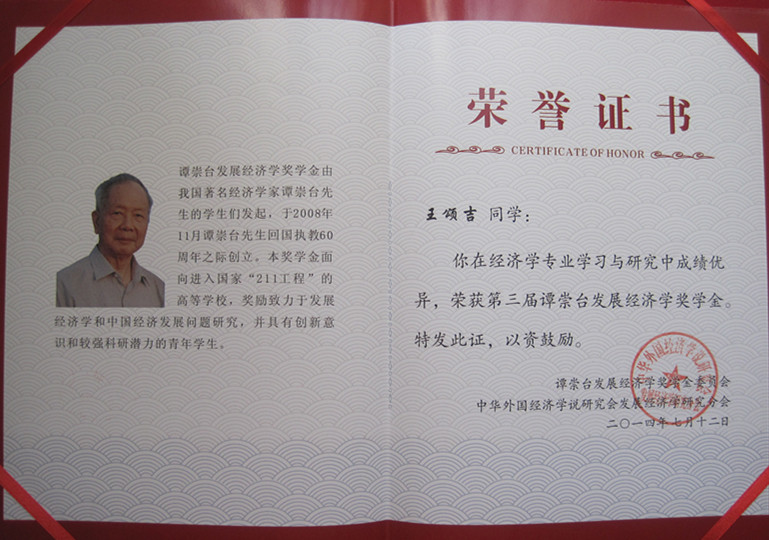 谭崇台发展经济学奖学金由
我国著名经济学家谭崇台先
生的学生们发起，于2008年
11月谭崇台先生回国执教60
周年之际创立。本奖学金面
向进入国家“211工程”的
高等学校，奖励致力于发展
经济学和中国经济发展问题研究，并具有创新意
识和较强科研潜力的青年学生。
荣誉证书
CERTIFICATE OF HONOR
王颂吉 同学：
你在经济学专业学习与研究中成绩优
异，荣获第三届谭崇台发展经济学奖学金。
特发此证，以资鼓励。
谭崇台发展经济学奖学金委员会
中华外国经济学说研究会发展经济学研究分会
二〇一四年七月十二日
中华外国经济学说研究会